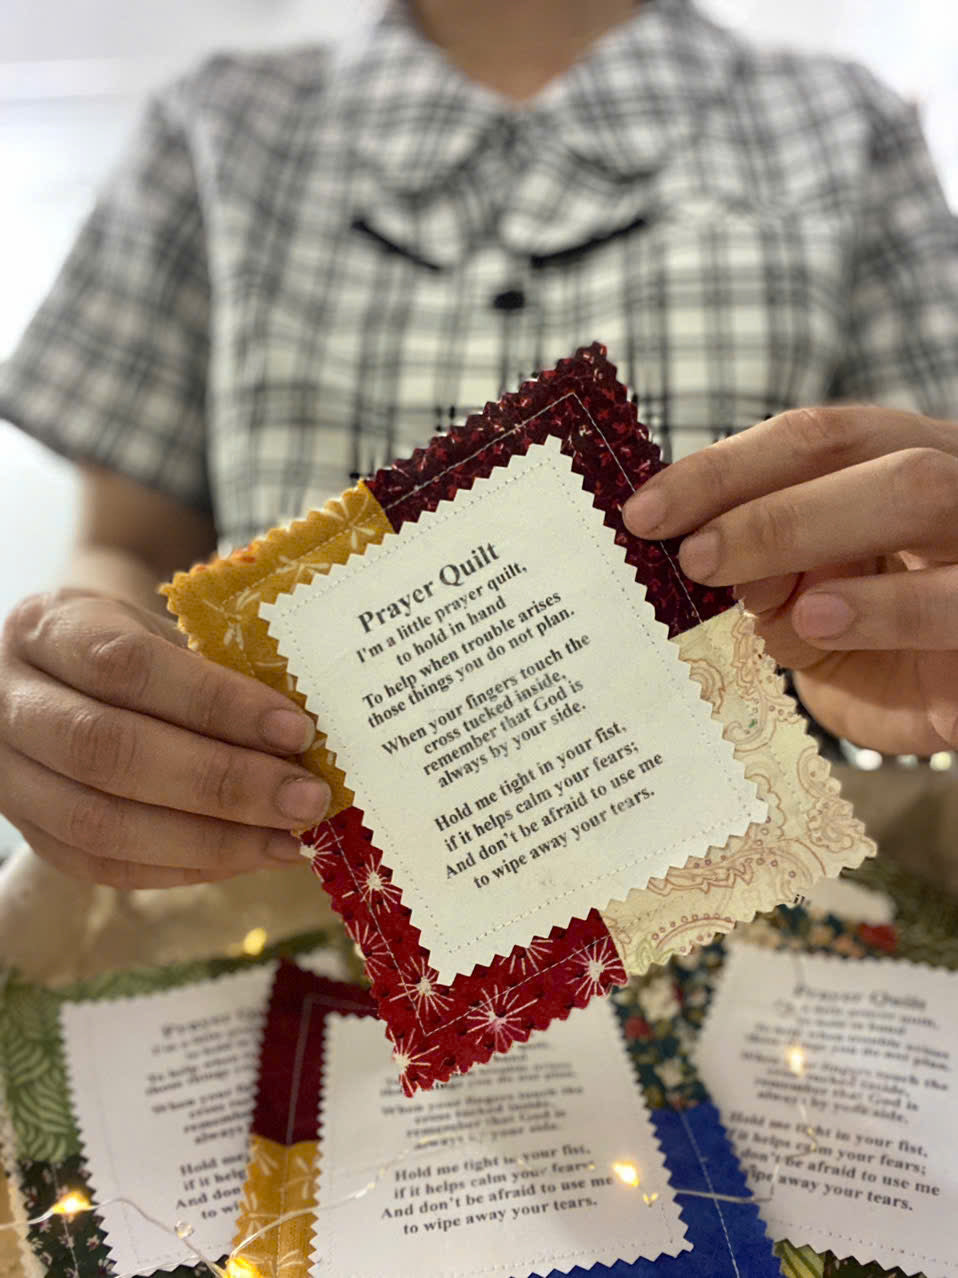 Prayer Quilt
I'm a little prayer quilt,
to hold in hand
To help when trouble arises
those things you do not plan.
When your fingers touch the
cross tucked inside,
remember that God is
always by your side.
Hold me tight in your fist,
if it helps calm your fears;
And don't be afraid to use me
to wipe away your tears.
Prayer
I'm a little
to h
To help when
those things
When your
cross
remem
always
Hold me
if it h
And don
to wi
When your fingers touch the
cross tucked inside,
remember that God is
always by your side.
Hold me tight in your fist,
if it helps calm your fears;
And don't be afraid to use me
to wipe away your tears.
Prayer Quilt
a little prayer quilt,
to hold in hand
To help when trouble arises
those things you do not plan.
When your fingers touch the
cross tucked inside,
remember that God is
always by your side.
Hold me tight in your fist,
it helps calm your fears;
don't be afraid to use me
wipe away your tears.